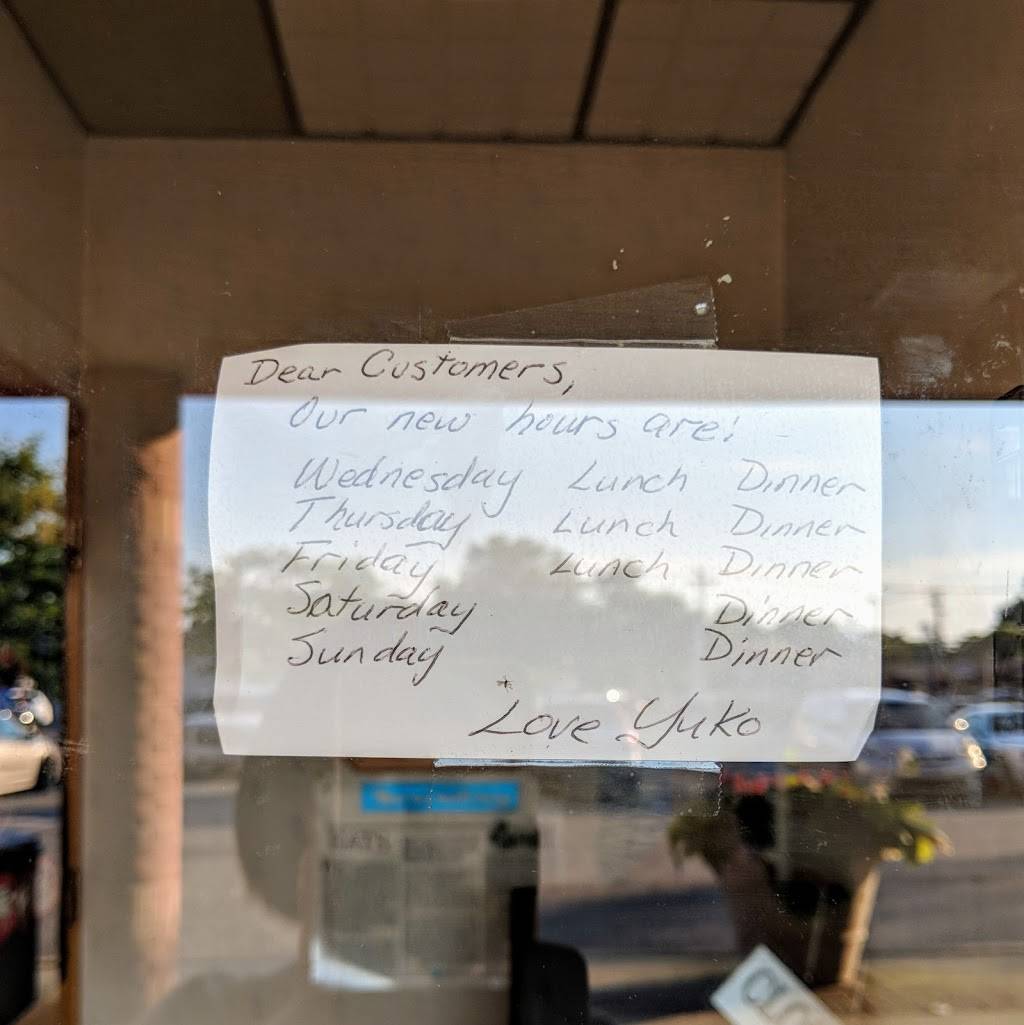 Dear Customers,
Our new hours are:
Wednesday Lunch Dinner
Thursday Lunch Dinner
Friday Lunch Dinner
Saturday Dinner
Sunday Dinner
Love Yuko